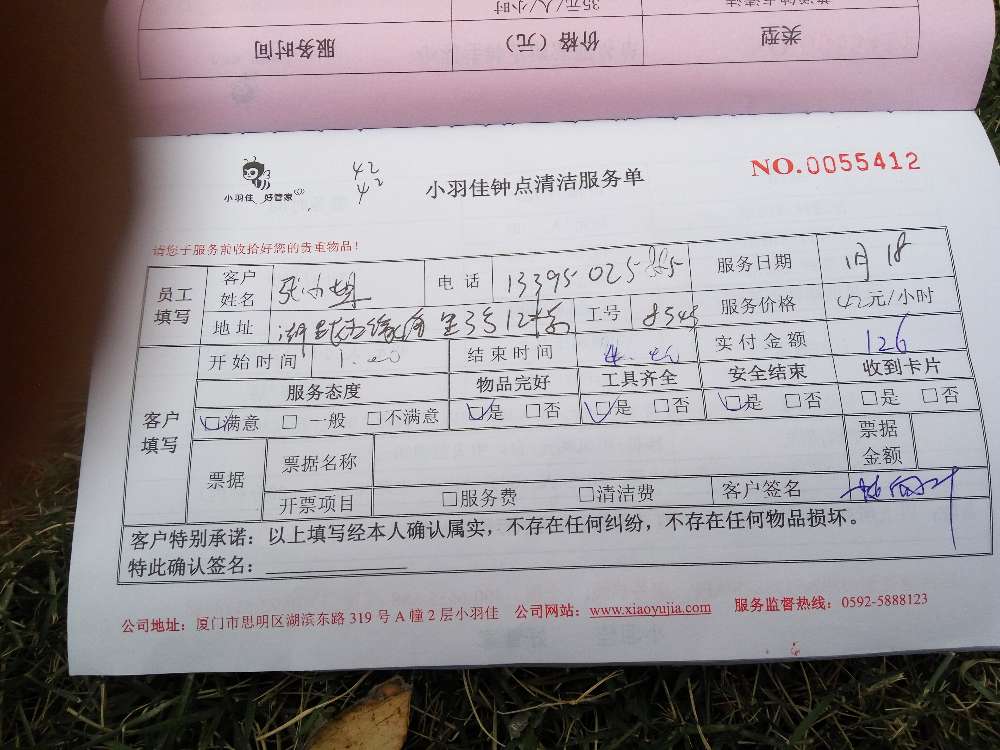 35元/人/小时
类型 价格（元） 服务时间
小羽佳 好管家
42
42
小羽佳钟点清洁服务单
NO.0055412
请您于服务前收拾好您的贵重物品！
员工填写 客户姓名 电话 13395025 服务日期 1月18
地址 工号 8545 服务价格 42元/小时
客户填写 开始时间 1.40 结束时间 4.40 实付金额 126
服务态度 物品完好 工具齐全 安全结束 收到卡片
☑满意 □一般 □不满意 ☑是 □否 ☑是 □否 ☑是 □否 □是 □否
票据 票据名称 票据金额
开票项目 □服务费 □清洁费 客户签名
客户特别承诺：以上填写经本人确认属实，不存在任何纠纷，不存在任何物品损坏。
特此确认签名：
公司地址：厦门市思明区湖滨东路 319 号 A 幢 2 层小羽佳 公司网站：www.xiaoyujia.com 服务监督热线：0592-5888123